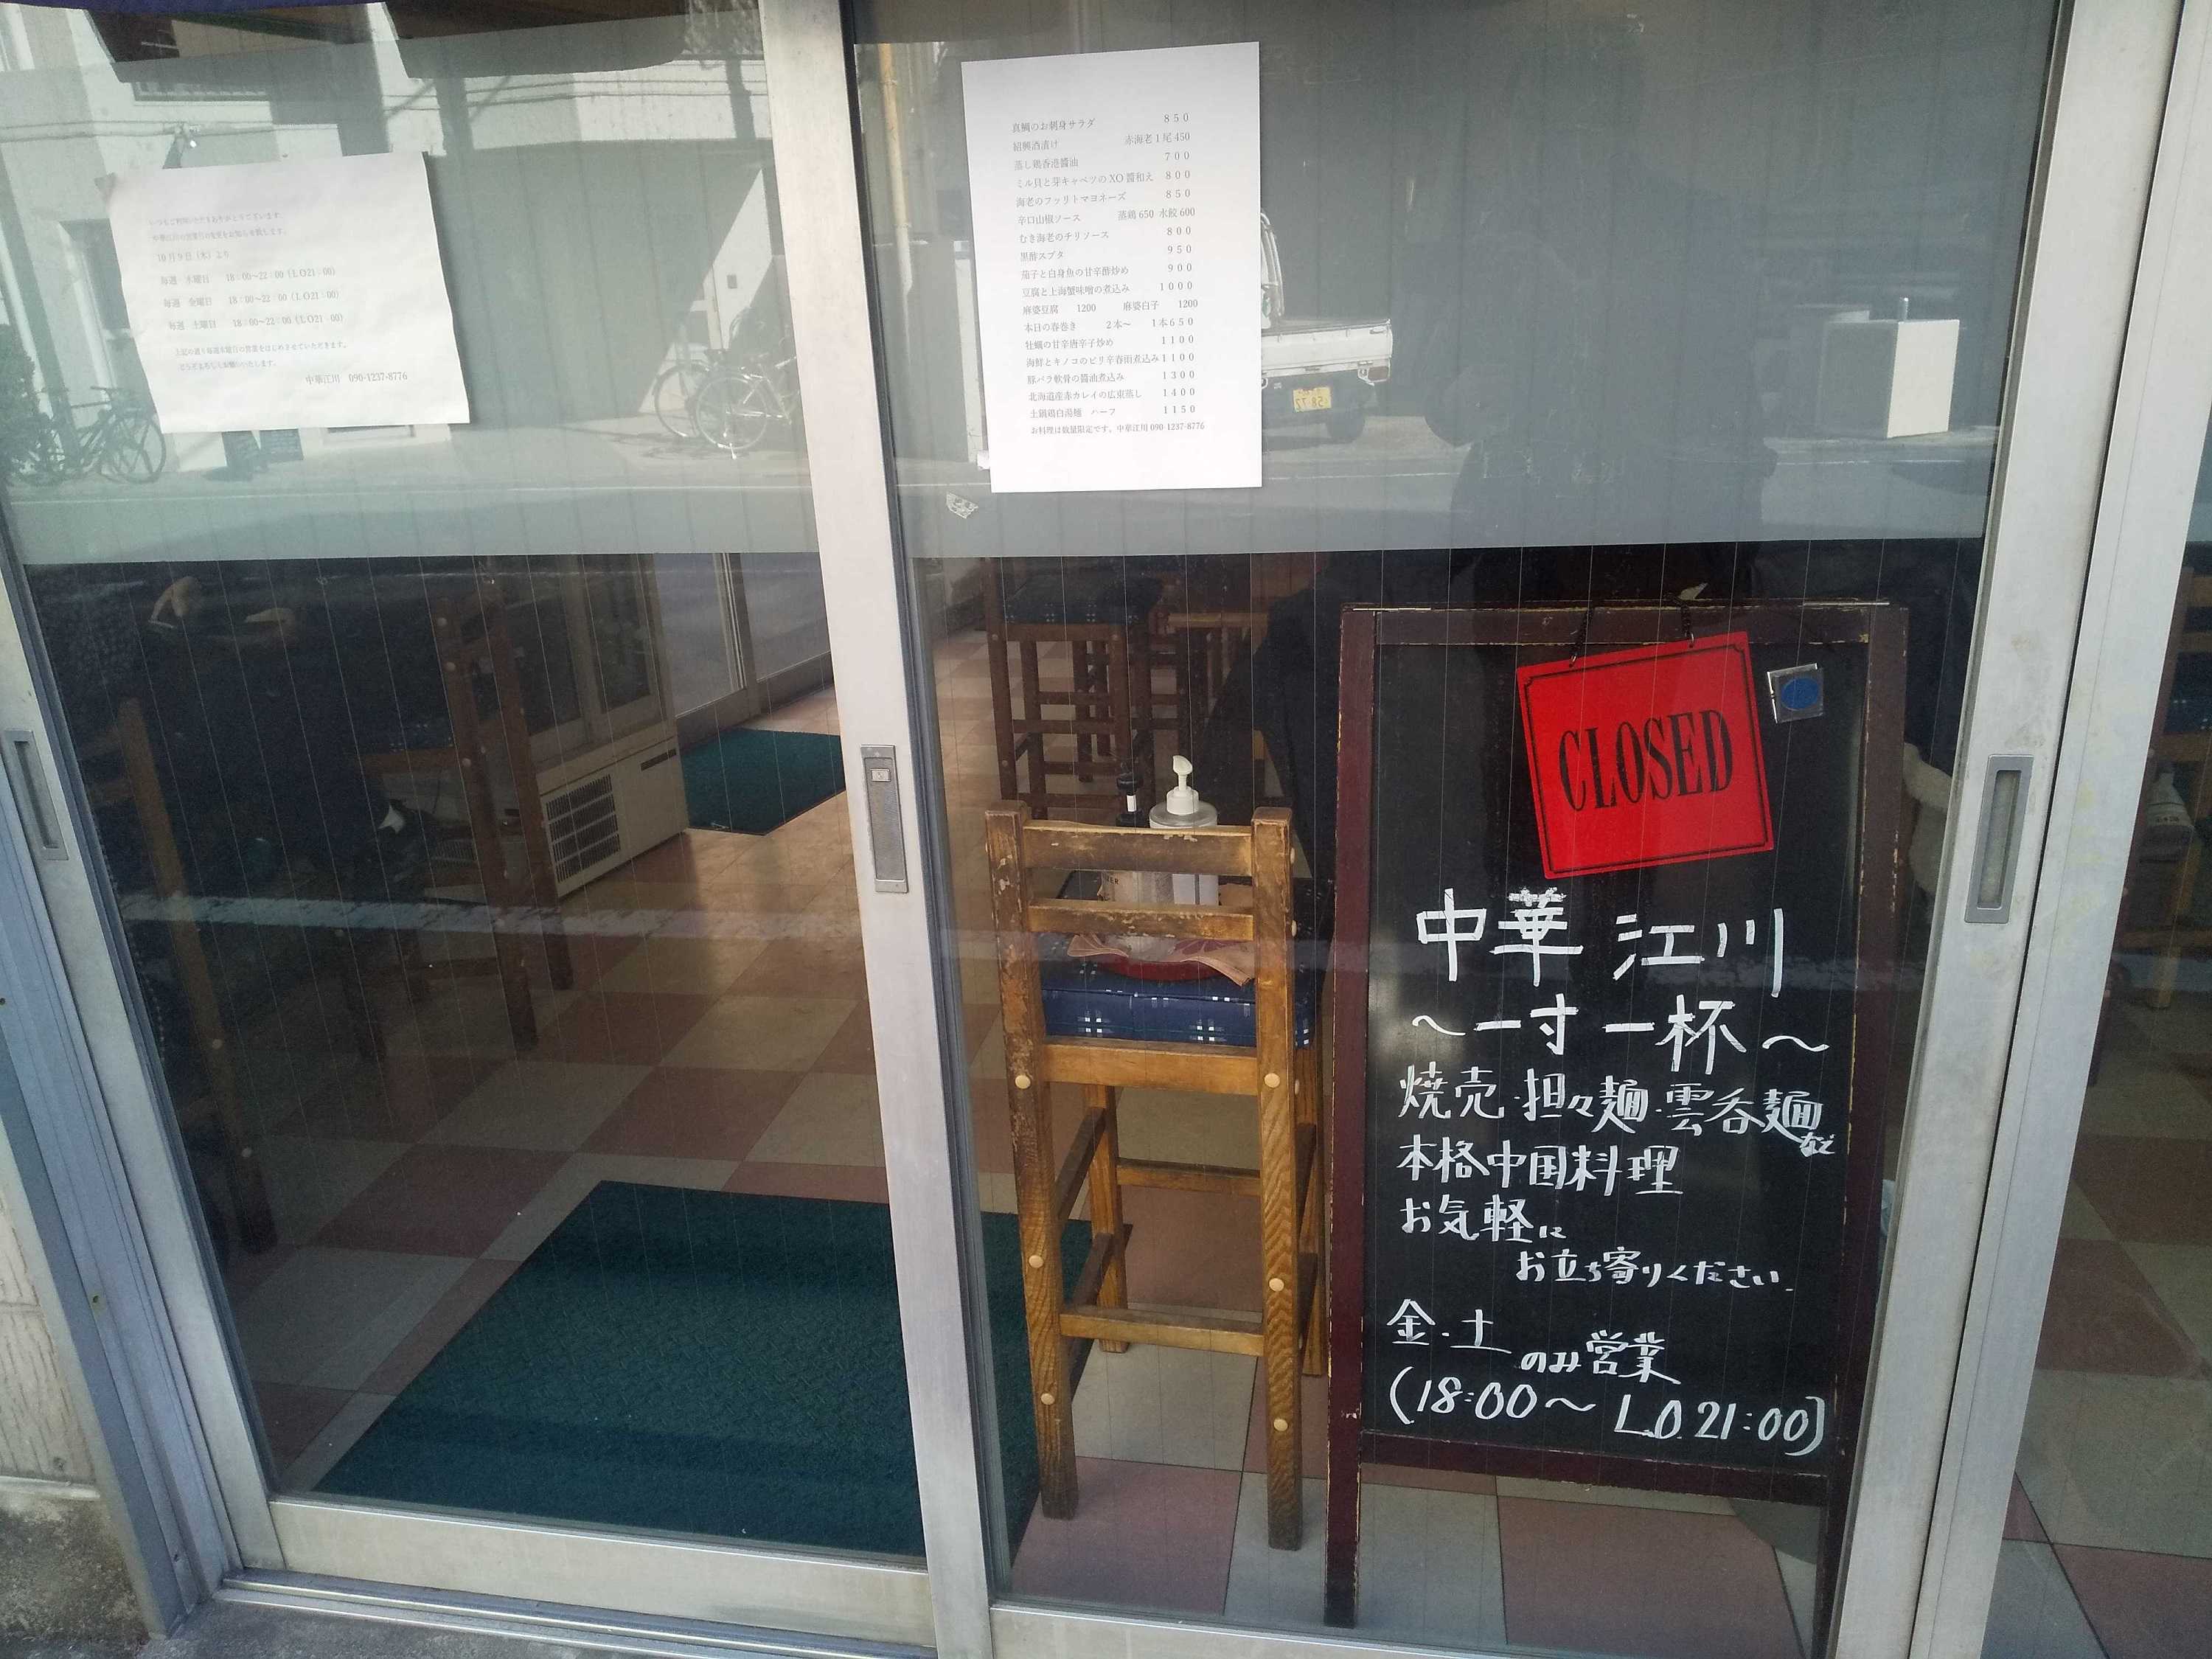 いつもご利用いただきありがとうございます
中華江川の営業日の変更をお知らせ致します。
10月9日（水）より
毎週　水曜日　18：00～22：00（L O21：00）
毎週　金曜日　18：00～22：00（L O21：00）
毎週　土曜日　18：00～22：00（L O21：00）
上記の通り毎週水曜日の営業をはじめさせていただきます。
どうぞよろしくお願いいたします。
中華江川　090-1237-8776
真鯛のお刺身サラダ　８５０
紹興酒漬け　赤海老１尾450
蒸し鶏香港醤油　７００
ミル貝と芽キャベツのXO醤和え　８００
海老のフリットマヨネーズ　８５０
辛口山椒ソース　蒸鶏650 水餃600
むき海老のチリソース　８００
黒酢スブタ　９５０
茄子と白身魚の甘辛酢炒め　９００
豆腐と上海蟹味噌の煮込み　１０００
麻婆豆腐　1200　麻婆白子　1200
本日の春巻き　２本～　１本６５０
牡蠣の甘辛唐辛子炒め　１１００
海鮮とキノコのピリ辛春雨煮込み１１００
豚バラ軟骨の醤油煮込み　１３００
北海道産赤カレイの広東蒸し　１４００
土鍋鶏白湯麺　ハーフ　１１５０
お料理は数量限定です。中華江川 090-1237-8776
CLOSED
中華 江川
～一寸一杯～
焼売・担々麺・雲呑麺など
本格中国料理
お気軽に
お立ち寄りください
金・土のみ営業
(18:00～L.O.21:00)